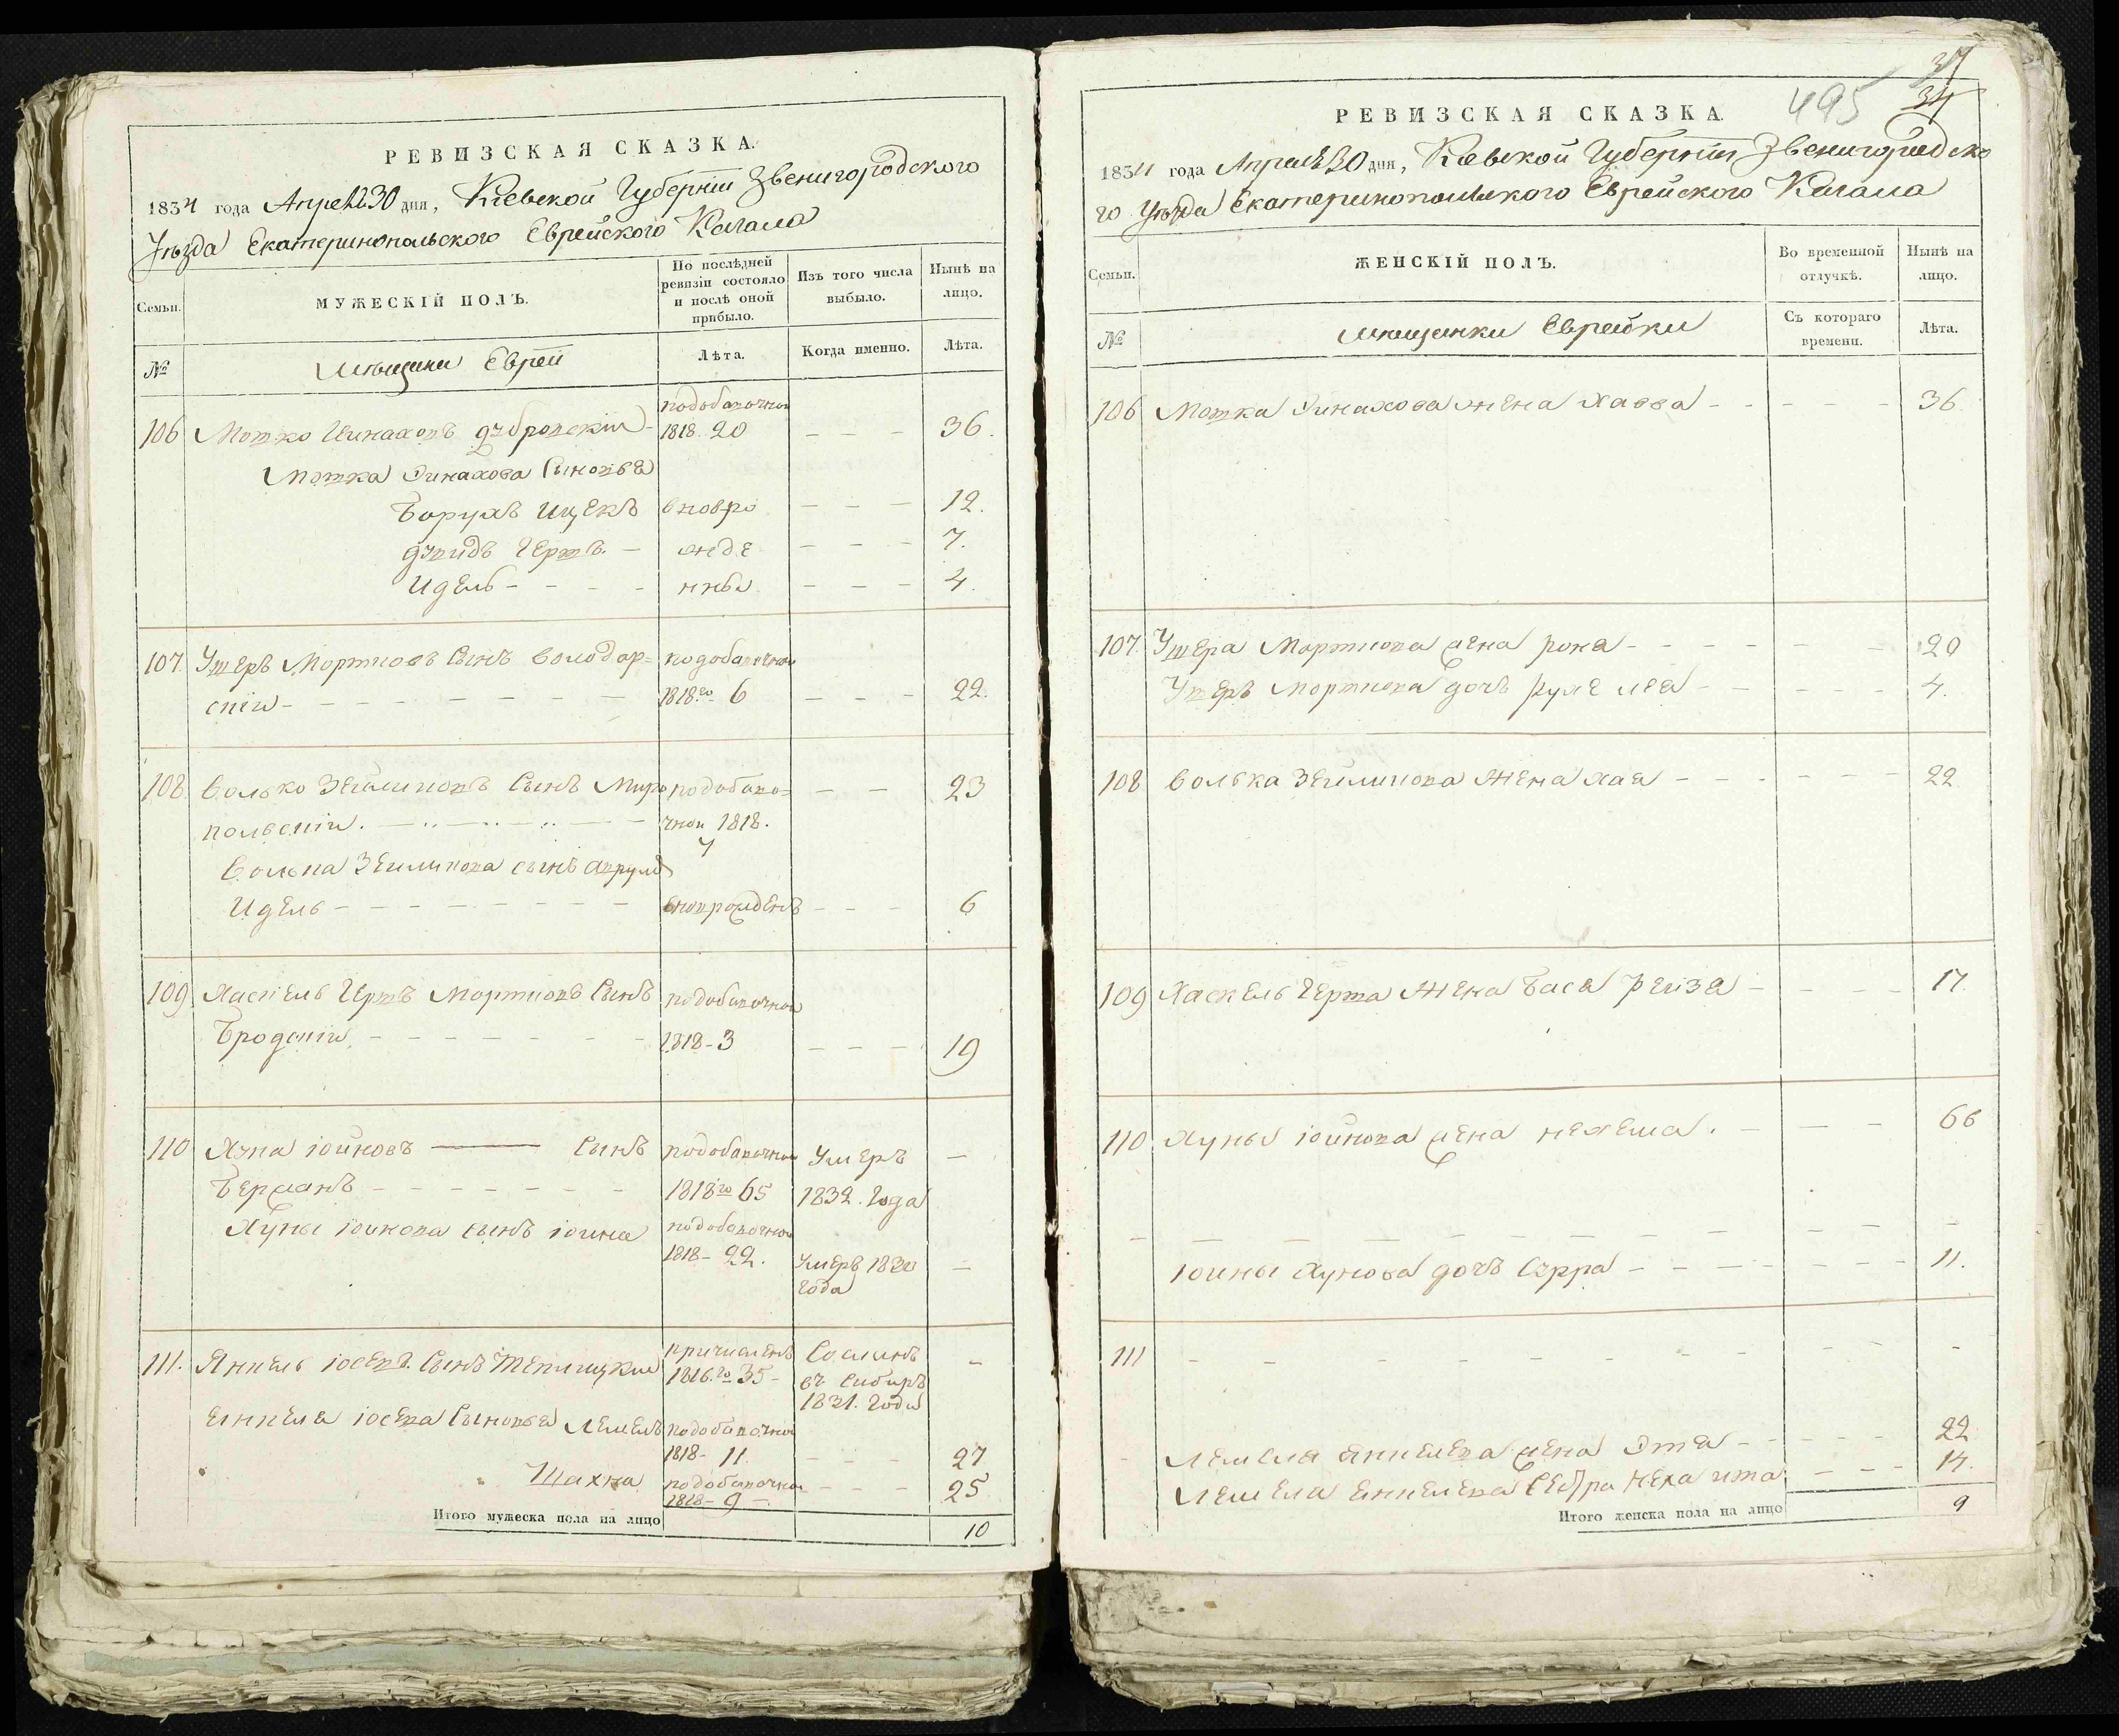 РЕВИЗСКАЯ СКАЗКА.
1834 года Апреля 30 дня, Кіевской Губерніи Звенигородского
Уѣзда Екатеринопольского Еврейского Кагала
Семьи.
МУЖЕСКІЙ ПОЛЪ.
По послѣдней ревизіи состояло и послѣ оной прибыло.
Изъ того числа выбыло.
Нынѣ на лицо.
№
мѣщане Евреи
Лѣта.
Когда именно.
Лѣта.
106 Мошко Шинахов
подобавочной
1818. 20 — — — 36.
Мошка Эинахова Сыновья
Борухъ Ицекъ вновро — — — 12.
Давидъ Гершъ — жде — — — 7.
Идель — — — — нны — — — 4.
107 Ушеръ Мортковъ Сынъ Володар= подобавочной
скій — — — — — — — 1818.го 6 — — — 22.
108 Волько Зейликовъ Сынъ Миро подобаво= — — 23
польскій. — — — чной 1818.
7
Волька Зейликова сынъ Аврумъ
Идель — — — — — — — вноврожденъ — — — 6
109 Хаскель Гершъ Мортковъ Сынъ подобавочной
Бродскій — — — — — — — 1818 - 3 — — — 19
110 Хуна Іойновъ — Сынъ подобавочной Умеръ —
Берманъ — — — — — — 1818го 65 1832. Года
Хуны Іойнова сынъ Іойна подобавочной
1818 - 22. Умеръ 1830 —
Года
111. Янкель Іосевъ. Сынъ причисленъ Сосланъ —
1816.го 35 - въ Сибирь
1831. Года
Янкеля Іосева Сыновья Лемель подобавочной
1818 - 11. — — — 27
Шахна подобавочной — — — 25
1818 - 9 —
Итого мужеска пола на лицо 10
34
495
РЕВИЗСКАЯ СКАЗКА.
1834 года Апреля 30 дня, Кіевской Губерніи Звенигородско
го Уѣзда Екатеринопольского Еврейского Кагала
Семьи.
ЖЕНСКІЙ ПОЛЪ.
Во временной отлучкѣ.
Нынѣ на лицо.
№
мѣщанки Еврейки
Съ котораго времени.
Лѣта.
106 Мошка Эинахова жена Хавва — — — — — 36
107. Ушера Морткова жена — — — — — — 20
Ушеръ Морткова дочь Лея — — — — — 4.
108 Волька Зейликова Жена Хая — — — — — — 22
109 Хаскель Герша Жена Бася Рейза — — — — 17.
110 Хуны Іойнова жена Нехема. — — — 66
— — — — — — — — — — —
Іойны Хунова дочь Сурра — — — — — — — 11.
111 — — — — — — — — — —
Лемеля Янкелева жена Эта — — — — — 22
Лемеля Янкелева Сестра Неха Ита — — — 14.
Итого женска пола на лицо 9